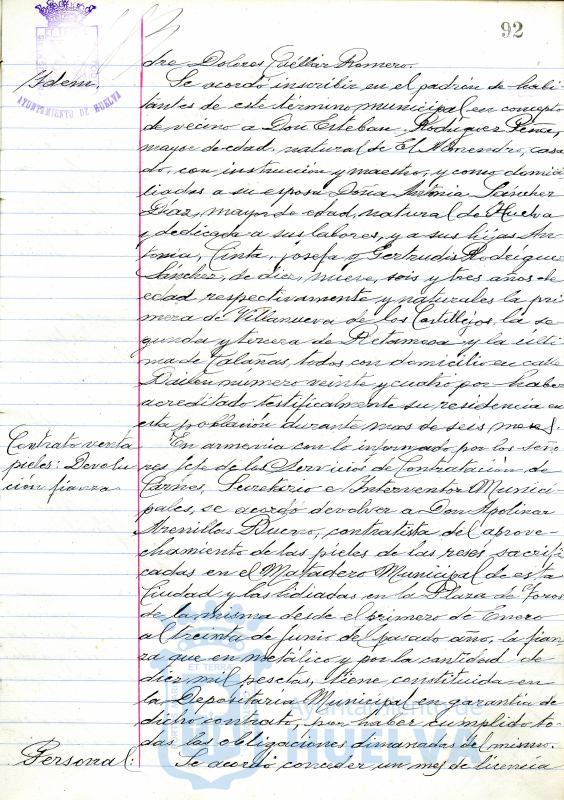 92
dre Dolores Cuéllar Romero.
Idem
AYUNTAMIENTO DE HUELVA
Se acordó inscribir en el padrón de habi-
tantes de este termino municipal en concepto
de vecino a Don Esteban Rodriguez Peña,
mayor de edad, natural de El Almendro, casa-
do, con instrucción y maestro, y como domici-
liadas a su esposa Doña Antonia Sánchez
Díaz, mayor de edad, natural de Huelva
y dedicada a sus labores, y a sus hijas An-
tonia, Cinta, Josefa y Gertrudis Rodríguez
Sánchez, de diez, nueve, seis y tres años de
edad respectivamente y naturales la pri-
mera de Villanueva de los Castillejos, la se-
gunda y tercera de Retamosa y la últi-
ma de Calañas, todos con domicilio en calle
Bailen numero veinte y cuatro por haber
acreditado testificalmente su residencia en
esta población durante mas de seis meses.
Contrato venta
pieles: Devolu-
ción fianza
En armonia con lo informado por los seño-
res Jefe de los Servicios de Contratación de
Carnes, Secretario e Interventor Munici-
pales, se acordó devolver a Don Apolinar
Arenillas Bueno, contratista del aprove-
chamiento de las pieles de las reses sacrifi-
cadas en el Matadero Municipal de esta
Ciudad y las lidiadas en la Plaza de Toros
de la misma desde el primero de Enero
al treinta de junio del pasado año, la fian-
za que en metálico y por la cantidad de
diez mil pesetas, tiene constituida en
la Depositaria Municipal en garantia de
dicho contrato, por haber cumplido to-
das las obligaciones dimanadas del mismo.
Personal:
Se acordó conceder un mes de licencia
Ayuntamiento de
HUELVA